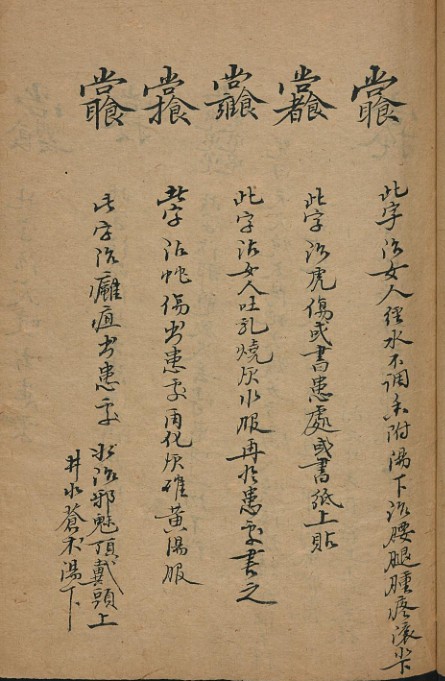 此字治女人經水不調香附湯下治腰腿腫疼滾水下
此字治虎傷或書患處或書紙上貼
此字治女人吐乳燒灰水服再於患處書之
此字治蛇傷書患處再化灰雄黃湯服
此字治癰疽書患處 治邪魅頂戴頭上
井水蒼朮湯下